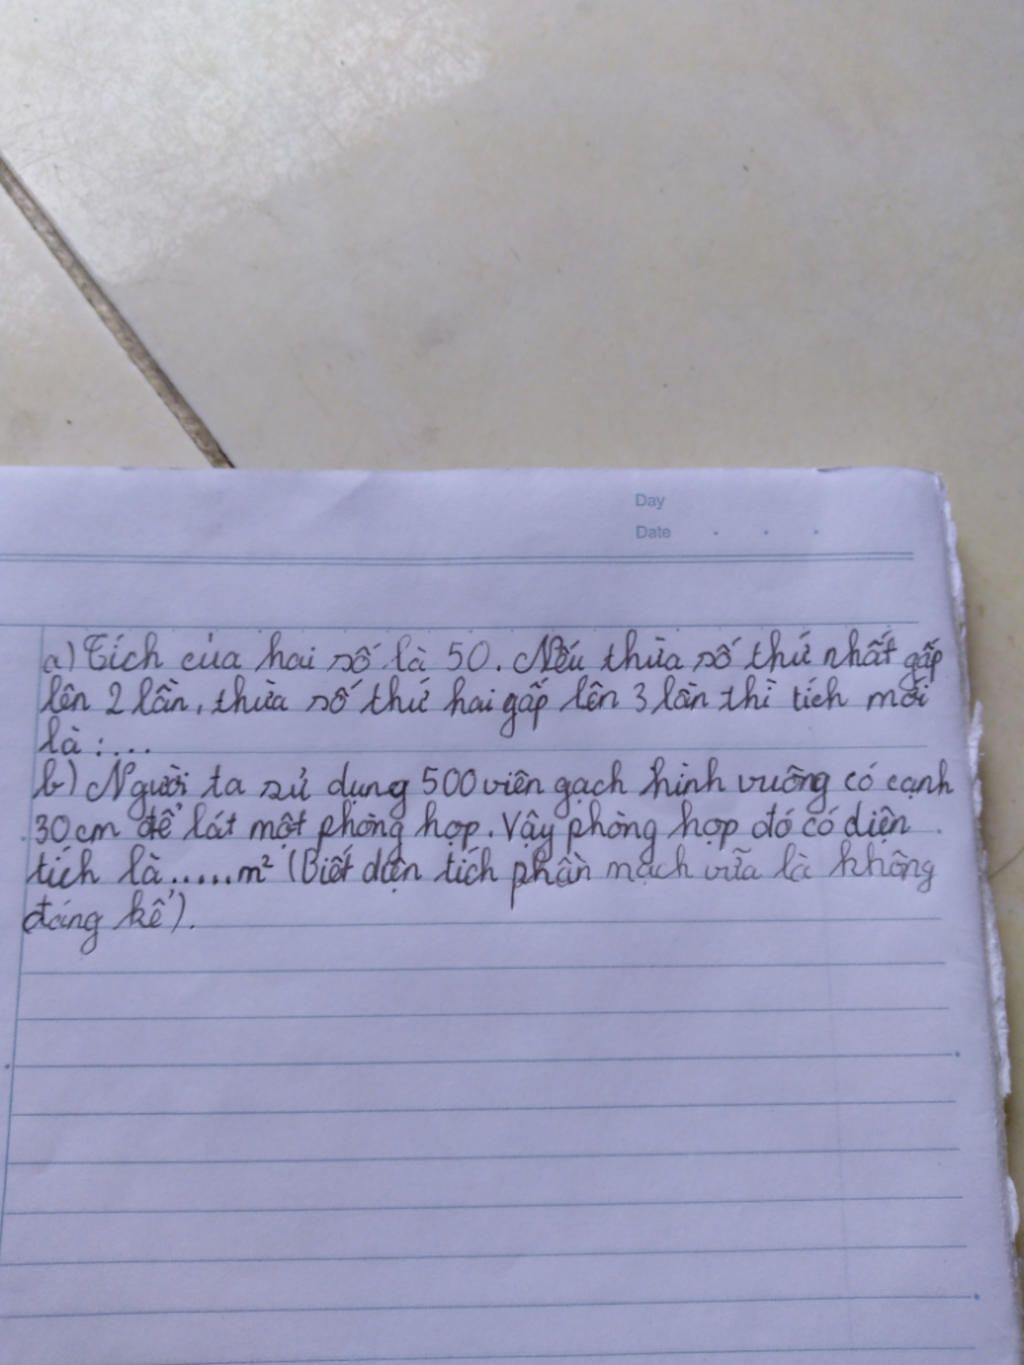 Day
Date . . .
a) Tích của hai số là 50. Nếu thừa số thứ nhất gấp
lên 2 lần, thừa số thứ hai gấp lên 3 lần thì tích mới
là :...
b) Người ta sử dụng 500 viên gạch hình vuông có cạnh
30 cm để lát một phòng họp. Vậy phòng họp đó có diện
tích là.....m² (Biết diện tích phần mạch vữa là không
đáng kể).